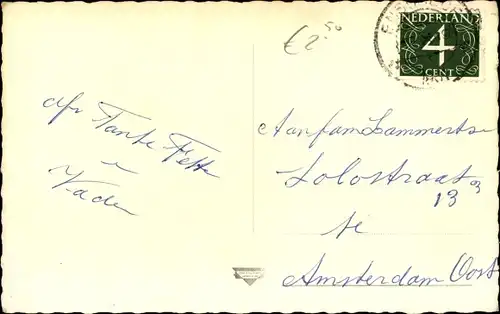 € 2.50
NEDERLAND
4
CENT
afz Tante Fetta
e
Vader
Aan fam Lammertse
Solostraat
13
te
Amsterdam Oost